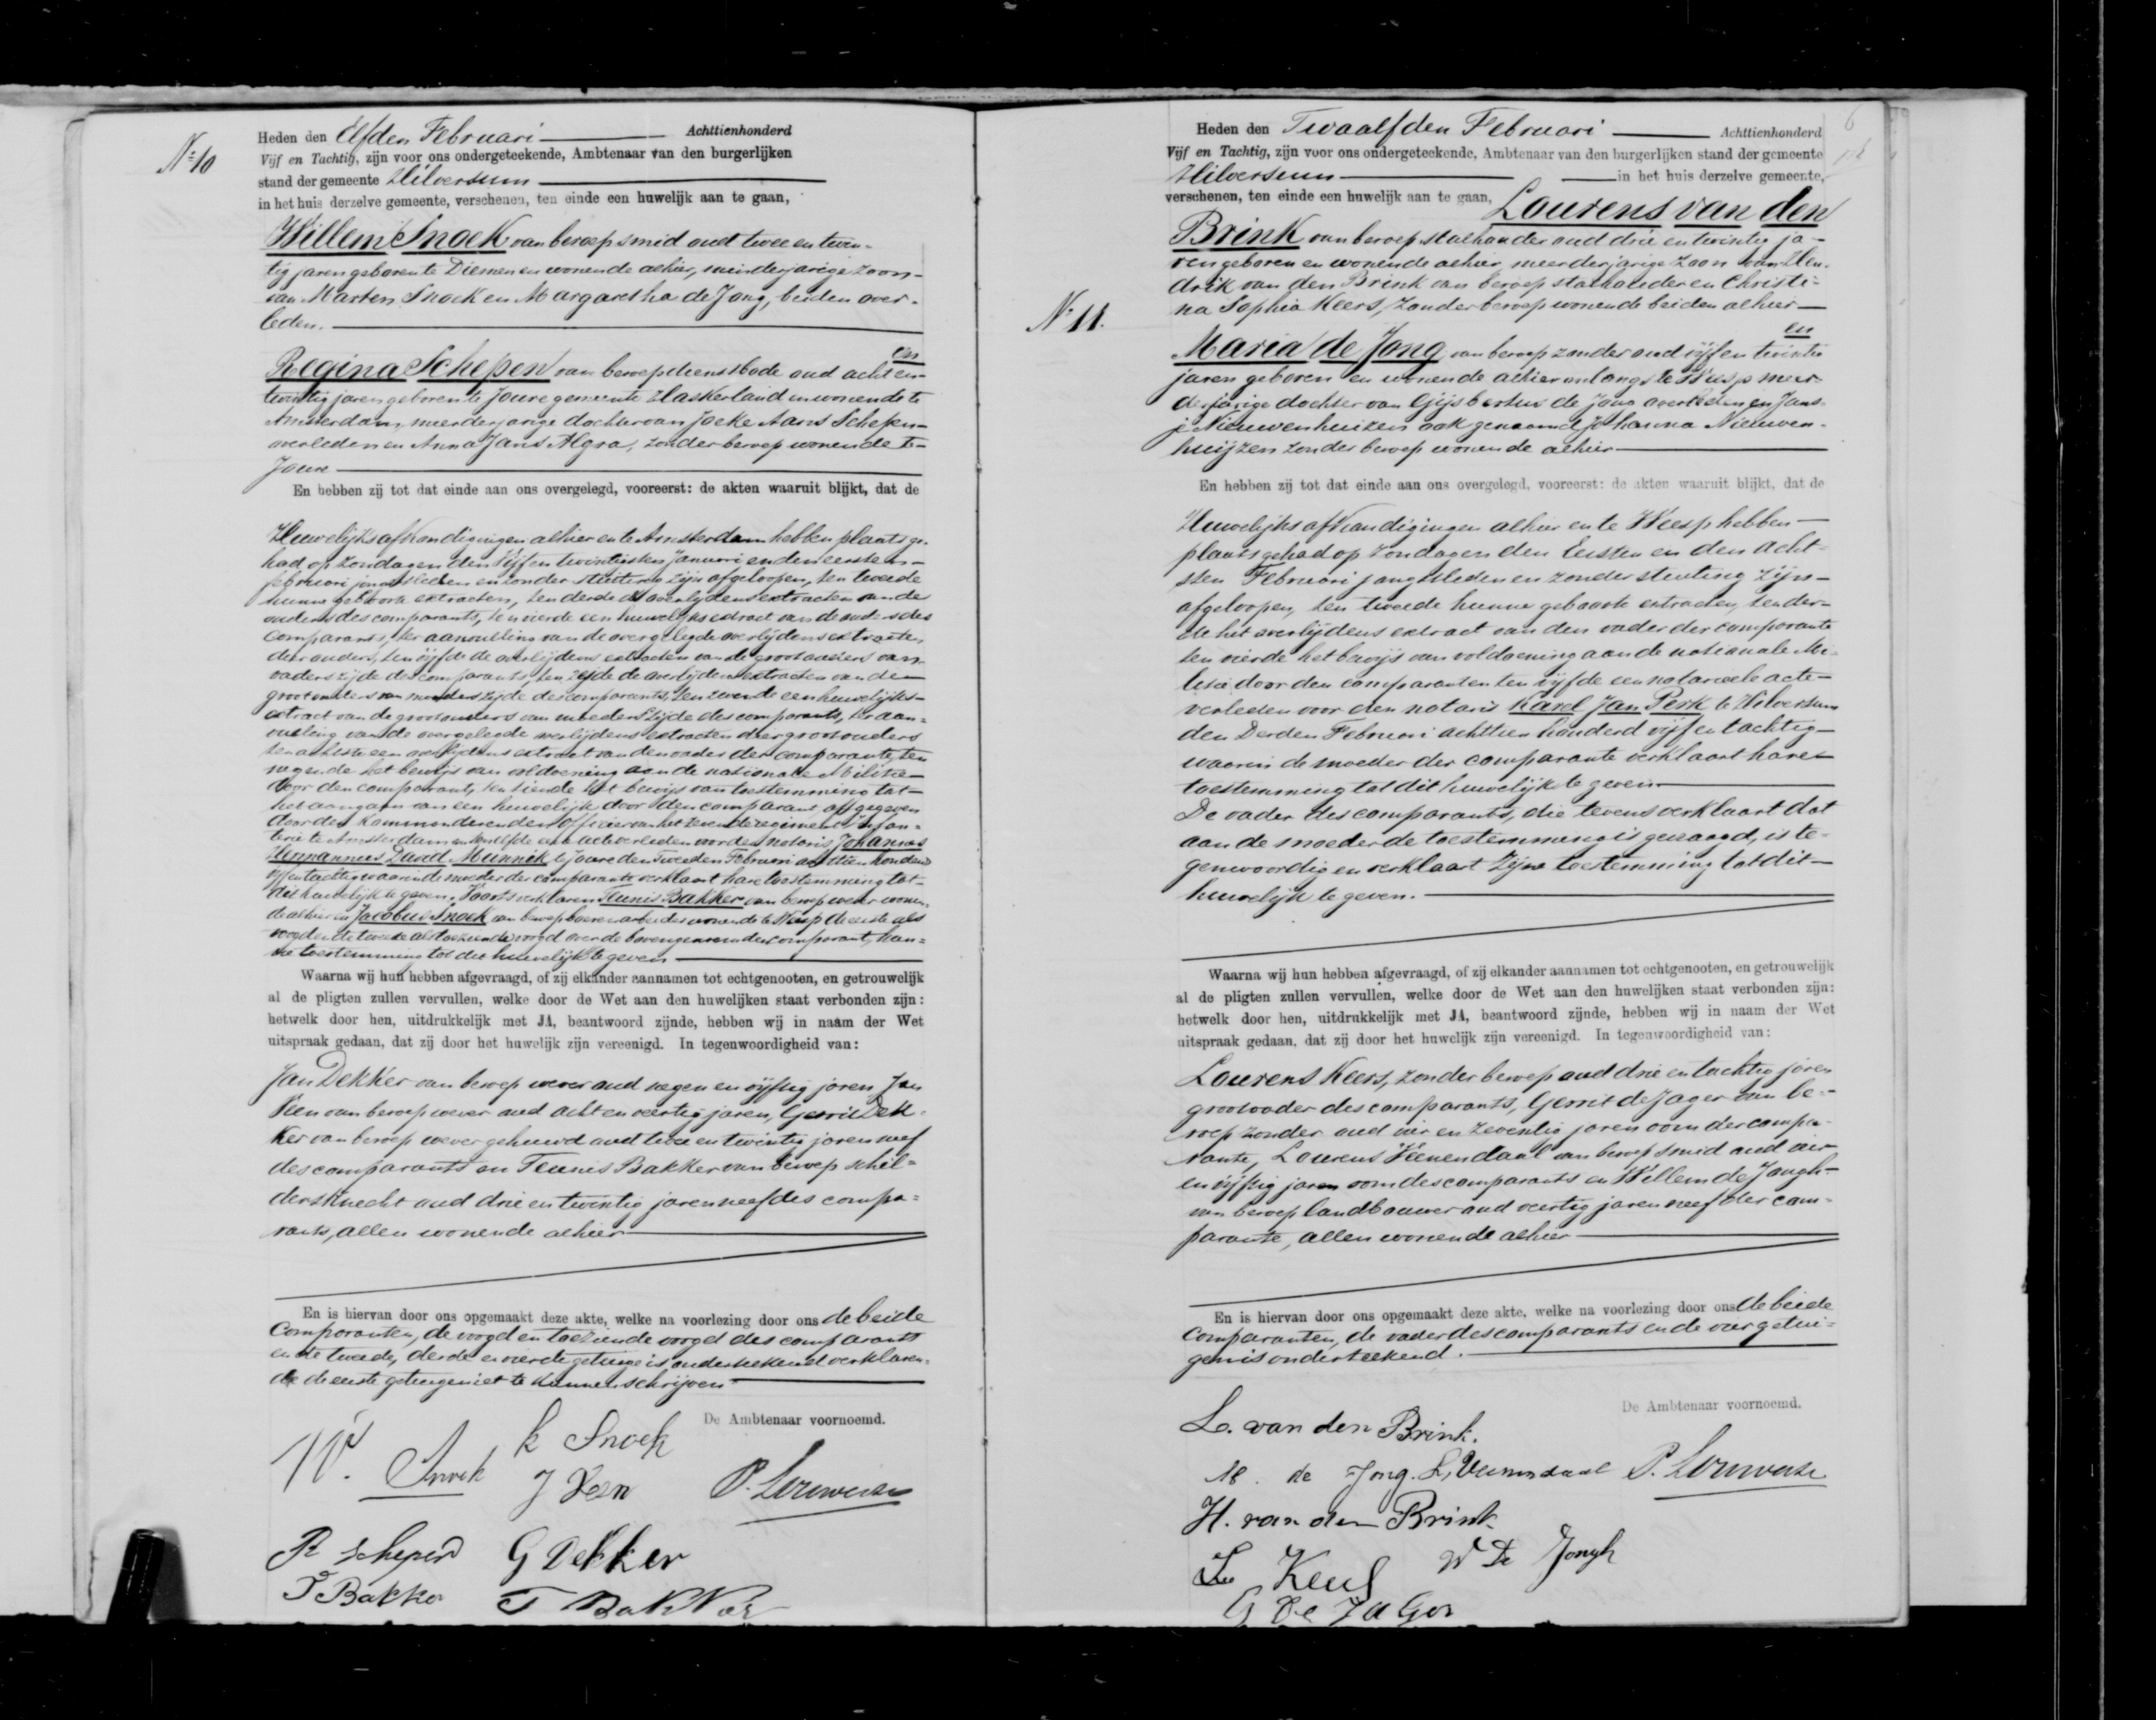 Nº 10
Heden den Elfden Februari Achttienhonderd
Vijf en Tachtig, zijn voor ons ondergeteekende, Ambtenaar van den burgerlijken
stand der gemeente Hilversum
in het huis derzelve gemeente, verschenen, ten einde een huwelijk aan te gaan,
Willem Snoek van beroep smid oud twee en twin-
tig jaren geboren te Diemen en wonende alhier, minderjarige zoon
van Marten Snoek en Margaretha de Jong, beiden over-
leden.
en
Regina Schepen van beroep dienstbode oud acht en
twintig jaren geboren te Joure gemeente Haskerland en wonende te
Amsterdam, meerderjarige dochter van Joeke Aans Schepen
overleden en Anna Jans Algra, zonder beroep wonende te
Joure
En hebben zij tot dat einde aan ons overgelegd, vooreerst: de akten waaruit blijkt, dat de
Huwelijks afkondigingen alhier en te Amsterdam hebben plaats ge-
had op Zondagen den Vijf en twintigsten Januari en den eersten
februari jongstleden en zonder stuiting zijn afgeloopen, ten tweede
hunne geboorte extracten, ten derde de overlijdens extracten van de
ouders des comparants, ten vierde een huwelijks extract van de ouders des
comparants, ter aanvulling van de overgelegde overlijdens extracten
dier ouders, ten vijfde de overlijdens extracten van de grootouders van
vaders zijde des comparants, ten zesde de overlijdens extracten van de
grootouders van moeders zijde des comparants, ten zevende een huwelijks-
extract van de grootouders van moeders zijde des comparants, ter aan-
vulling van de overgelegde overlijdens extracten dier grootouders
ten achtste een overlijdens extract van den vader der comparante, ten
negende het bewijs van voldoening aan de nationale Militie
door den comparant, ten tiende het bewijs van toestemming tot
het aangaan van een huwelijk door den comparant afgegeven
door den Kommanderenden Officier van het zevende regiment Infan-
terie te Amsterdam en ten elfde eene acte verleden voor den notaris Johannes
Hermannus David Munnik te Joure den tweeden Februari achttien honderd
vijf en tachtig waarin de moeder der comparante verklaart hare toestemming tot
dit huwelijk te geven. Voorts verklaren Teunis Bakker van beroep wever wonen-
de alhier en Jacobus Snoek van beroep boerenarbeider wonende te Weesp de eerste als
voogd en de tweede als toeziende voogd over de bovengenoemden comparant, hun-
ne toestemming tot dit huwelijk te geven
Waarna wij hun hebben afgevraagd, of zij elkander aannamen tot echtgenooten, en getrouwelijk
al de pligten zullen vervullen, welke door de Wet aan den huwelijken staat verbonden zijn:
hetwelk door hen, uitdrukkelijk met JA, beantwoord zijnde, hebben wij in naam der Wet
uitspraak gedaan, dat zij door het huwelijk zijn vereenigd. In tegenwoordigheid van:
Jan Dekker van beroep wever oud negen en vijftig jaren, Jan
Veen van beroep wever oud acht en veertig jaren, Gerrit Dek-
ker van beroep wever gehuwd oud twee en twintig jaren neef
des comparants en Teunis Bakker van beroep schil-
dersknecht oud drie en twintig jaren neef des compa-
rants, allen wonende alhier
En is hiervan door ons opgemaakt deze akte, welke na voorlezing door ons de beide
Comparanten, de voogd en toeziende voogd des comparants
en de tweede, derde en vierde getuige is onderteekend verklaren-
de de eerste getuige niet te kunnen schrijven
De Ambtenaar voornoemd.
W. Snoek
k Snoek
J Veen
P. Louwerse
R Schepen
G Dekker
T Bakker
T Bakker
Heden den Twaalfden Februari Achttienhonderd
Vijf en Tachtig, zijn voor ons ondergeteekende, Ambtenaar van den burgerlijken stand der gemeente
Hilversum in het huis derzelve gemeente,
verschenen, ten einde een huwelijk aan te gaan, Lourens van den
Brink van beroep stalhouder oud drie en twintig ja-
ren geboren en wonende alhier, meerderjarige zoon van Hen-
drik van den Brink van beroep stalhouder en Christi-
na Sophia Keers, zonder beroep wonende beiden alhier
Nº 11.
en
Maria de Jong van beroep zonder oud vijf en twintig
jaren geboren en wonende alhier onlangs te Weesp meer-
derjarige dochter van Gijsbertus de Jong overleden en Jans-
je Nieuwenhuizen ook genaamd Johanna Nieuwen-
huijzen zonder beroep wonende alhier
En hebben zij tot dat einde aan ons overgelegd, vooreerst: de akten waaruit blijkt, dat de
Huwelijks afkondigingen alhier en te Weesp hebben
plaats gehad op Zondagen den Eersten en den acht-
sten Februari jongstleden en zonder stuiting zijn
afgeloopen, ten tweede hunne geboorte extracten, ten der-
de het overlijdens extract van den vader der comparante
ten vierde het bewijs van voldoening aan de nationale Mi-
litie door den comparant en ten vijfde een notarieele acte
verleden voor den notaris Karel Jan Perk te Hilversum
den Derden Februari achttien honderd vijf en tachtig
waarin de moeder der comparante verklaart hare
toestemming tot dit huwelijk te geven.
De vader des comparants, die tevens verklaart dat
aan de moeder de toestemming is gevraagd, is te-
genwoordig en verklaart zijne toestemming tot dit
huwelijk te geven.
Waarna wij hun hebben afgevraagd, of zij elkander aannamen tot echtgenooten, en getrouwelijk
al de pligten zullen vervullen, welke door de Wet aan den huwelijken staat verbonden zijn:
hetwelk door hen, uitdrukkelijk met JA, beantwoord zijnde, hebben wij in naam der Wet
uitspraak gedaan, dat zij door het huwelijk zijn vereenigd. In tegenwoordigheid van:
Lourens Keers, zonder beroep oud drie en tachtig jaren
grootvader des comparants, Gerrit de Jager van be-
roep zonder oud vier en zeventig jaren oom der compa-
rante, Lourens Veenendaal van beroep smid oud
en vijftig jaren oom des comparants en Willem de Jongh
van beroep landbouwer oud veertig jaren neef der com-
parante, allen wonende alhier
En is hiervan door ons opgemaakt deze akte, welke na voorlezing door ons de beide
Comparanten, de vader des comparants en de vier getui-
gen is onderteekend.
De Ambtenaar voornoemd.
L. van den Brink.
M. de Jong. L, Veenendaal P. Louwerse
H. van den Brink
L Keers W De Jongh
G De Jager